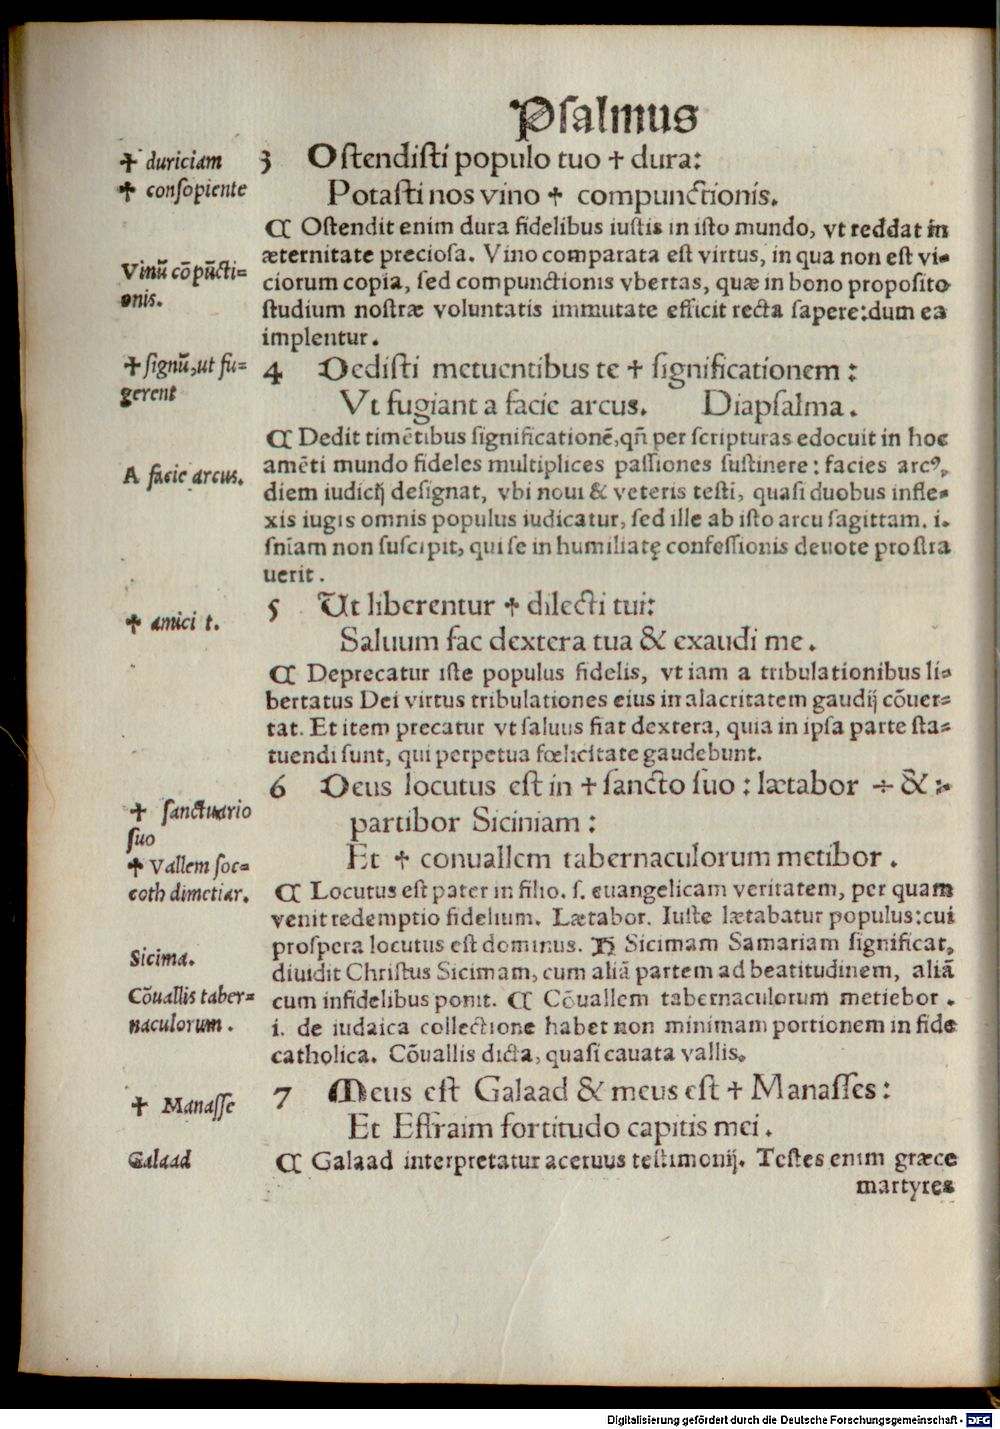 Psalmus
✝ duriciam
✝ consopiente
3 Ostendisti populo tuo ✝ dura:
Potasti nos vino ✝ compunctionis.
Vinū cōpūcti=
onis.
¶ Ostendit enim dura fidelibus iustis in isto mundo, vt reddat in
æternitate preciosa. Vino comparata est virtus, in qua non est vi-
ciorum copia, sed compunctionis vbertas, quæ in bono proposito
studium nostræ voluntatis immutate efficit recta sapere: dum ea
implentur.
✝ signū, ut fu=
gerent
4 Dedisti metuentibus te ✝ significationem:
Vt fugiant a facie arcus. Diapsalma.
A facie arcus.
¶ Dedit timētibus significationē, qñ per scripturas edocuit in hoc
amēti mundo fideles multiplices passiones sustinere: facies arcꝰ,
diem iudicij designat, vbi noui & veteris testi, quasi duobus infle-
xis iugis omnis populus iudicatur, sed ille ab isto arcu sagittam. i.
sniam non suscipit, qui se in humiliatę confessionis deuote prostra
uerit.
✝ amici t.
5 Ut liberentur ✝ dilecti tui:
Saluum fac dextera tua & exaudi me.
¶ Deprecatur iste populus fidelis, vt iam a tribulationibus li-
bertatus Dei virtus tribulationes eius in alacritatem gaudij cōuer=
tat. Et item precatur vt saluus fiat dextera, quia in ipsa parte sta=
tuendi sunt, qui perpetua fœlicitate gaudebunt.
✝ sanctuario
suo
✝ Vallem soc=
coth dimetiar.
6 Deus locutus est in ✝ sancto suo: lætabor ÷ & :
partibor Siciniam:
Et ✝ conuallem tabernaculorum metibor.
Sicima.
Cōuallis taber=
naculorum.
¶ Locutus est pater in filio. s. euangelicam veritatem, per quam
venit redemptio fidelium. Lætabor. Iuste lætabatur populus: cui
prospera locutus est dominus. Sicimam Samariam significat,
diuidit Christus Sicimam, cum aliā partem ad beatitudinem, aliā
cum infidelibus ponit. ¶ Cōuallem tabernaculorum metiebor.
i. de iudaica collectione habet non minimam portionem in fide
catholica. Cōuallis dicta, quasi cauata vallis.
✝ Manasse
7 Meus est Galaad & meus est ✝ Manasses:
Et Effraim fortitudo capitis mei.
Galaad
¶ Galaad interpretatur aceruus testimonij. Testes enim græce
martyres
Digitalisierung gefördert durch die Deutsche Forschungsgemeinschaft - DFG